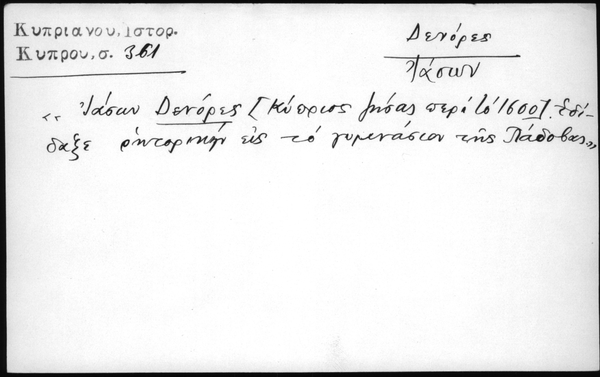 Κυπριανου, Ιστορ.
Κυπρου, σ. 361
Δενόρες
Ἰάσων
« Ἰάσων Δενόρες [Κύπριος ζήσας περί τό 1600]. Ἐδί-
δαξε ρητορικήν εἰς τό γυμνάσιον τῆς Πάδοβας»